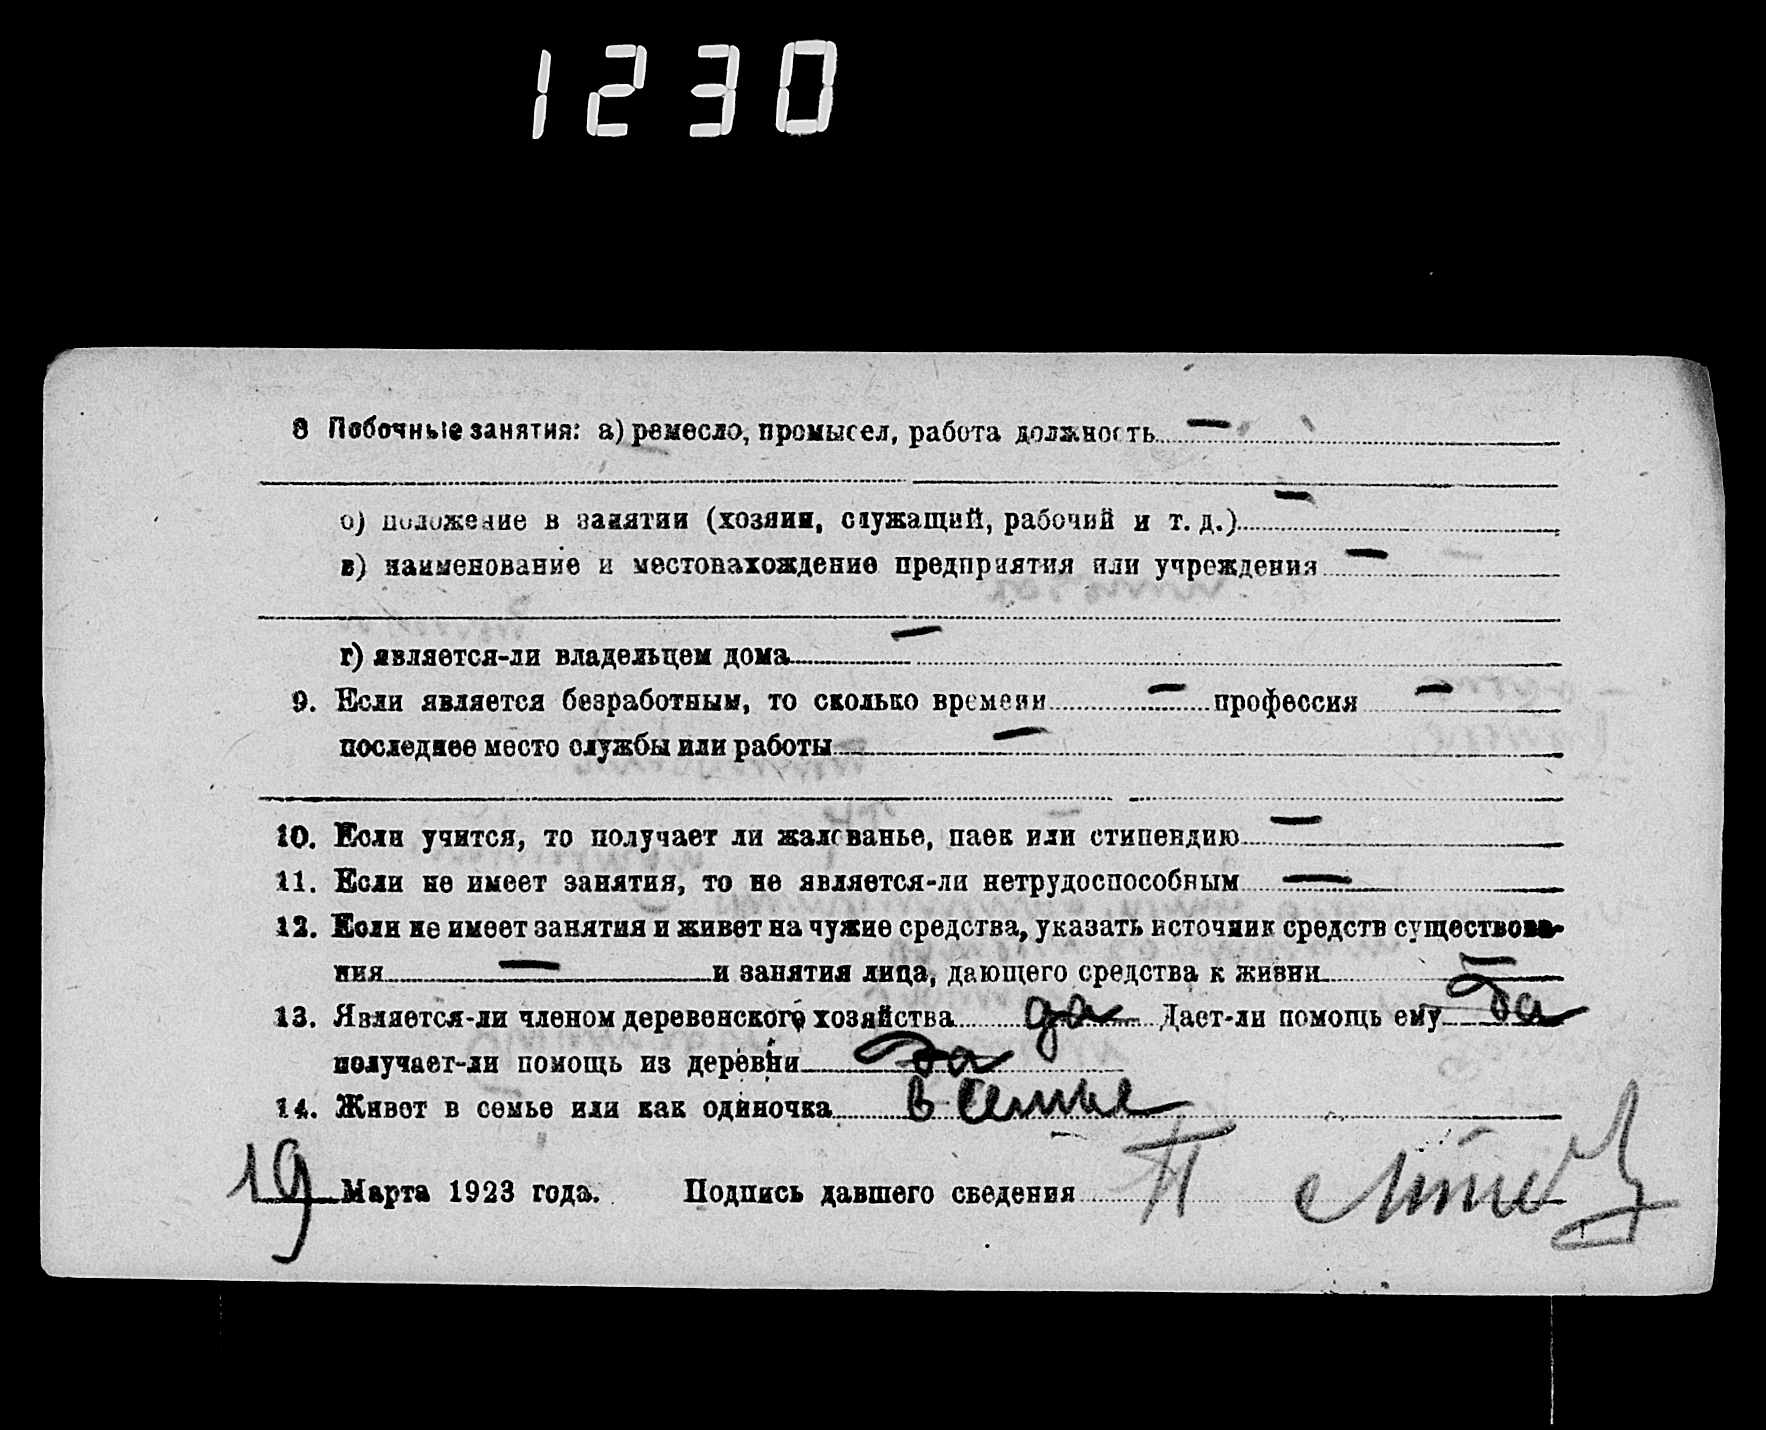 1230
8 Побочные занятия: а) ремесло, промысел, работа должность —
б) положение в занятии (хозяин, служащий, рабочий и т. д.) —
в) наименование и местонахождение предприятия или учреждения —
г) является-ли владельцем дома —
9. Если является безработным, то сколько времени — профессия —
последнее место службы или работы —
10. Если учится, то получает ли жалованье, паек или стипендию —
11. Если не имеет занятия, то не является-ли нетрудоспособным —
12. Если не имеет занятия и живет на чужие средства, указать источник средств существова-
ния — и занятия лица, дающего средства к жизни —
13. Является-ли членом деревенского хозяйства да Даст-ли помощь ему да
получает-ли помощь из деревни да
14. Живет в семье или как одиночка в семье
19 Марта 1923 года. Подпись давшего сведения П